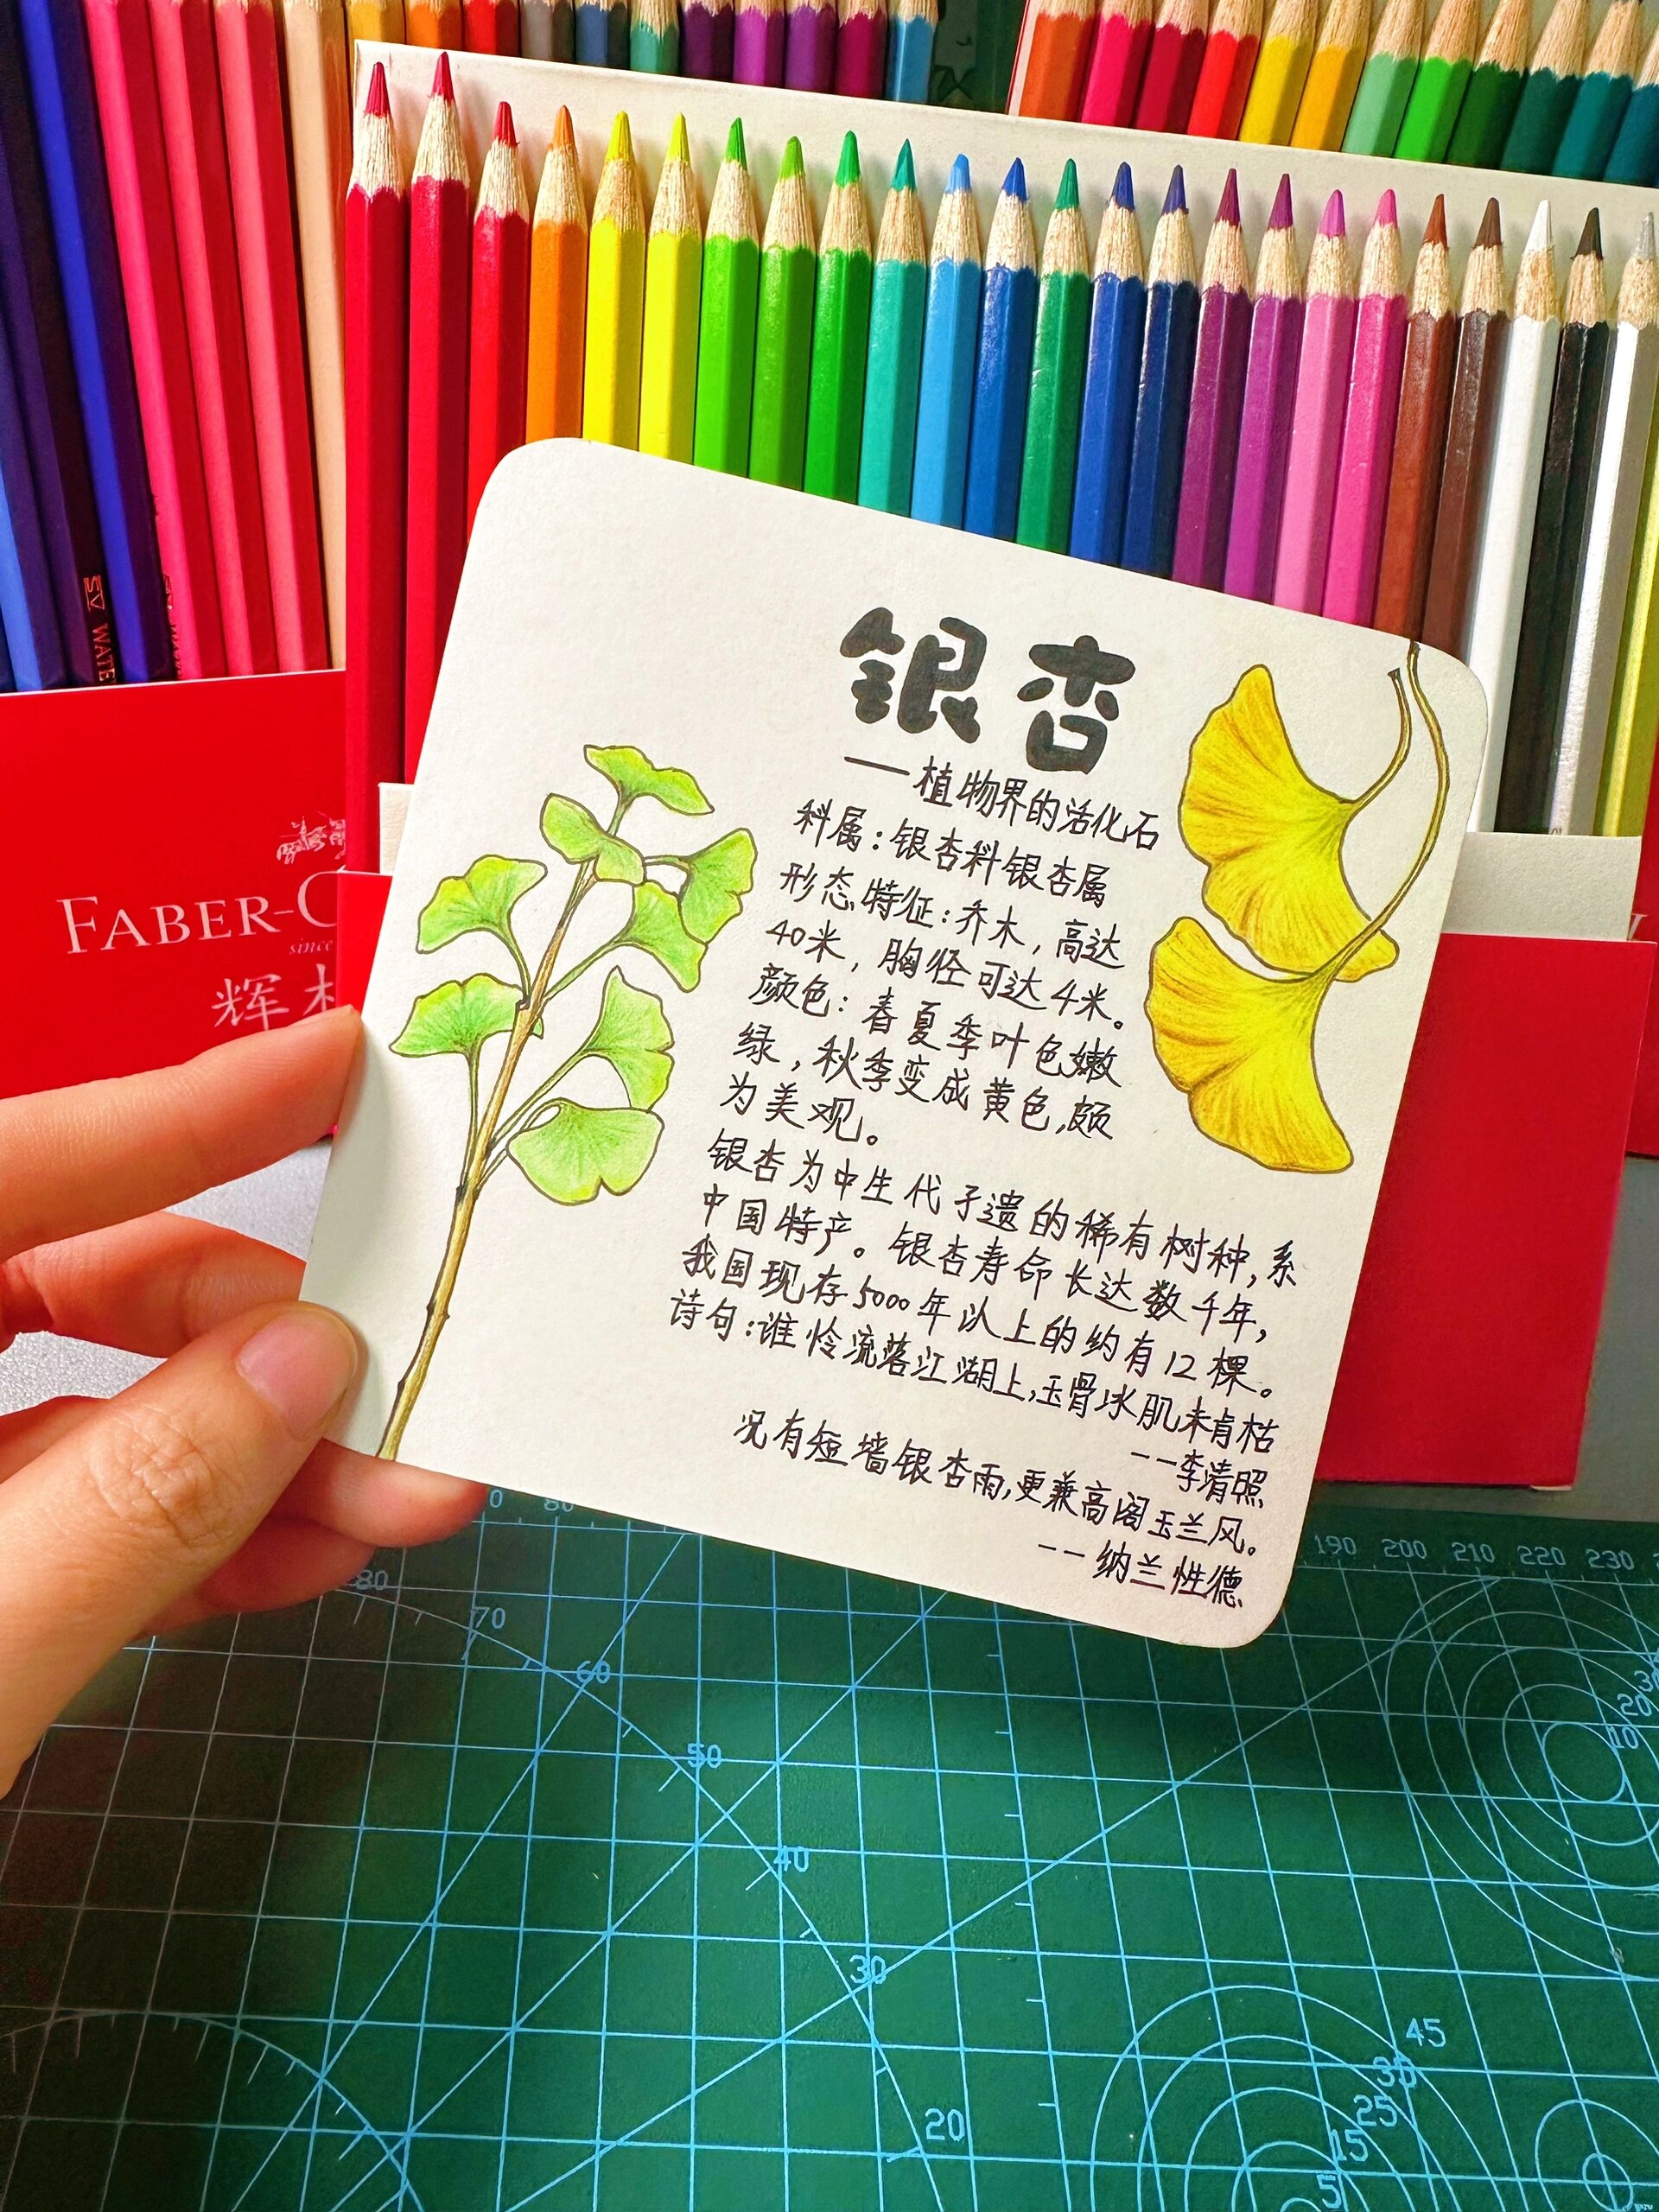 SV WATE
FABER-C
since
辉
银杏
——植物界的活化石
科属：银杏科银杏属
形态特征：乔木，高达
40米，胸径可达4米。
颜色：春夏季叶色嫩
绿，秋季变成黄色，颇
为美观。
银杏为中生代孑遗的稀有树种，系
中国特产。银杏寿命长达数千年，
我国现存5000年以上的约有12棵。
诗句：谁怜流落江湖上，玉骨冰肌未肯枯
--李清照
况有短墙银杏雨，更兼高阁玉兰风。
--纳兰性德
80
190 200 210 220 230
80
70
60
50
40
30
20
30
20
10
45
30
25
15
5